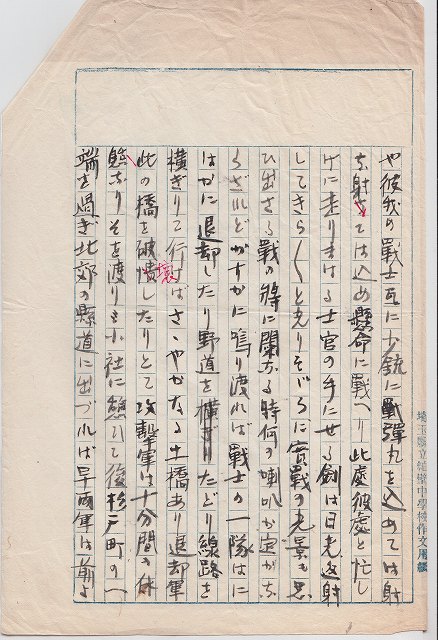 や彼我の戰士互に小銃に彈丸を込めては射
ち射ちては込め懸命に戰へり此處彼處と忙し
げに走りまはる士官の手にせる劍は日光返射
してきら〱と光りそゞろに實戰の光景も思
ひ出さる戰の將に闌なる時何の喇叭か定かな
らざれどかすかに鳴り渡れば戰士の一隊はに
はかに退却したり野道をたどり線路を
横ぎりて行けばさゝやかなる土橋あり退却軍
此の橋を破潰したりとて攻擊軍は十分間の休
壞
憩なりそを渡り小社に憩ひて後杉戸町の一
端を過ぎ北郊の縣道に出づれば早兩軍は前よ
埼玉縣立粕壁中學校作文用紙